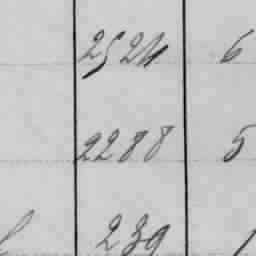 2524 6
2288 5
239 1